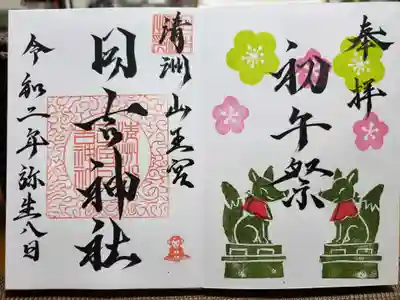 奉拝
初午祭
清洲山王宮
日吉神社
令和二年弥生八日